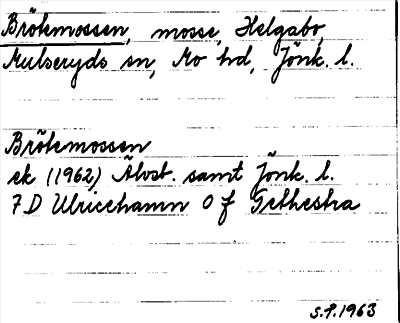 Brötemossen, mosse, Helgabo,
Mulseryds sn, Mo hd, Jönk. l.
Brötemossen
ek (1962) Älvsb. samt Jönk. l.
7 D Ulricehamn 0 f Grthestra
s.f. 1963